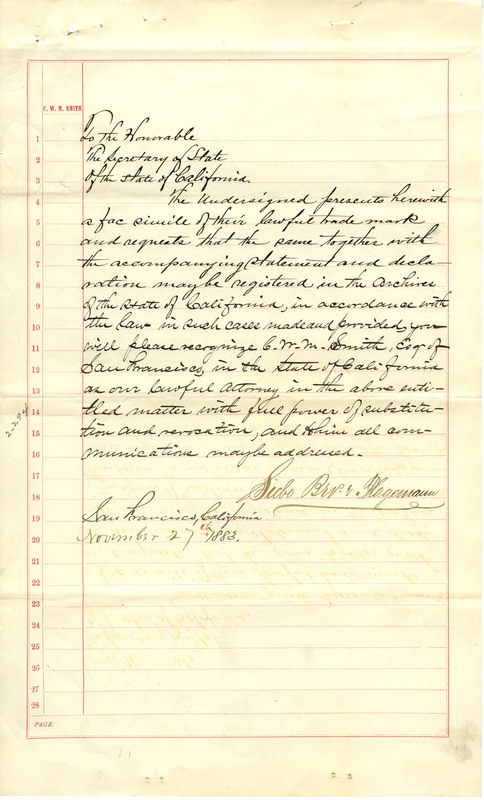 C. W. M. SMITH
1 To the Honorable
2 The Secretary of State
3 Of the State of California.
4 The Undersigned presents herewith
5 a fac simile of their lawful trade mark
6 and requests that the same together with
7 the accompanying statement and decla-
8 ration may be registered in the archives
9 of the State of California, in accordance with
10 the law in such cases made and provided, you
11 will please recognize C. W. M. Smith, Esq. of
12 San Francisco, in the State of California
13 as our lawful Attorney in the above enti-
14 tled matter with full power of substitu-
15 tion and revocation, and to him all com-
16 munications may be addressed.
17
18 Siebe Bros & Plagemann
19 San Francisco, California
20 November 27th 1883.
21
22
23
24
25
26
27
28
PAGE
2294